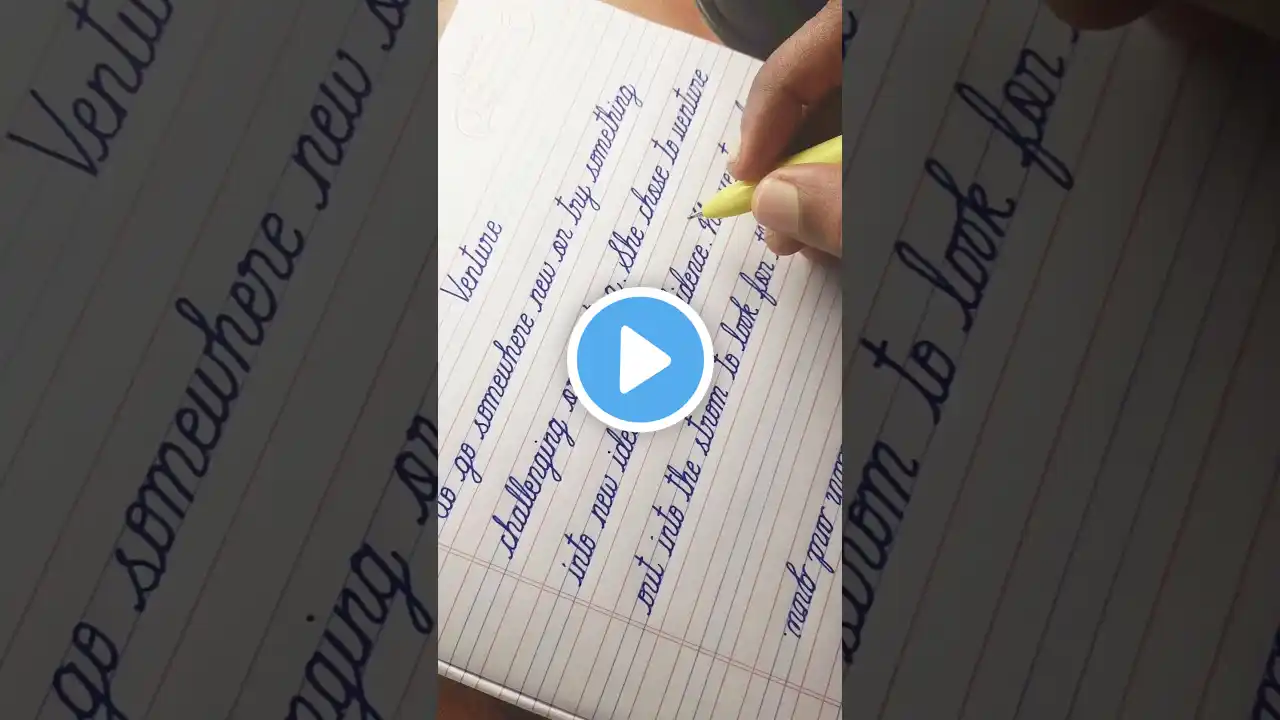 Venture
to go somewhere new or try something
challenging or She chose to venture
into new idence.
out into the strom to look for
and